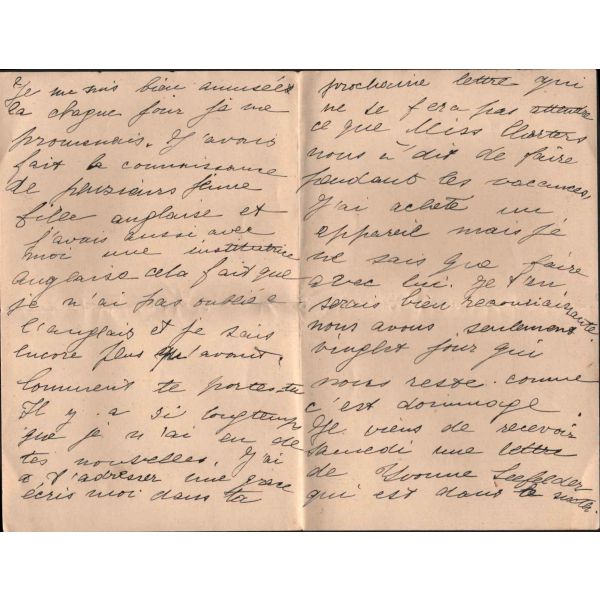 Je me suis bien amusée
la chaque jour je me
promenais. J'avais
fait la connaissance
de pluzieurs jeune
fille anglaise et
j'avais aussi avec
moi une institutrice
anglaise cela fait que
je n'ai pas oublié
l'anglais et je sais
encore plus qu'avant.
Comment te portes-tu
Il y a si longtemps
que je n'ai eu de
tes nouvelles. J'ai
a t'adresser une grace
écris moi dans ta
prochaine lettre qui
ne se fera pas attendre
ce que Miss Charters
nous à dit de faire
pendant les vacances,
J'ai acheté un
appareil mais je
ne sais que faire
avec lui. Je t'en
serais bien reconnaissante.
nous avons seulement
vinght jour qui
nous reste. comme
c'est dommage.
Je viens de recevoir
samedi une lettre
de Yvonne Seefelder
qui est dans la